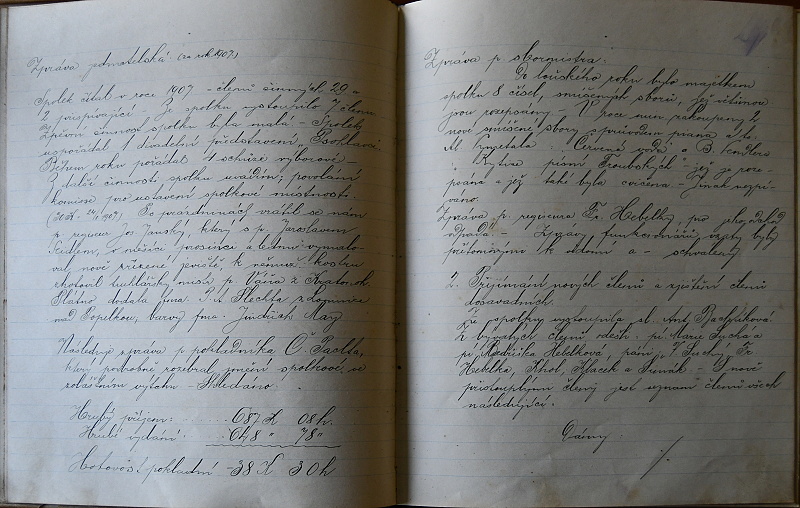 Zpráva jednatelská (za rok 1907.)
Spolek čítal v roce 1907 - členů činných 29 a
2 přispívající. - Ze spolku vystoupilo 7 členů.
činnost spolku byla malá. - Spolek
uspořádal 1 divadelní představení „Psohlavci“
Během roku pořádal 4 schůze výborové -
Z další činnosti spolku uvádím; povolání
komise pro ustavení spolkové místnosti.
1907) Po prázdninách vrátil se nám
p. regiseur Jos. Jánský, který s p. Jaroslavem
Seidlem, v měsíci prosince a lednu vymalo-
val nové zřízené jeviště, k němuž kostru
zhotovil truhlářský mistr p. Váňa z
Plátno dodala firma J. A. Plechta z Lomnice
nad Popelkou, barvy fma. Jindřich May
Následuje zpráva p. pokladníka Č. Paolla,
který podrobně rozebral jmění spolkové ve
zvláštním výtahu. - Shledáno.
Hrubý příjem: 687 K 08 h.
Hrubé vydání: 648 " 78 "
Hotovost pokladní - 38 K 30 h
Zpráva p. sbormistra:
Do loňského roku bylo majetkem
spolku 8 čísel, smíšených sborů, jež většinou
jsou rozepsány. - V roce min. zakoupeny 2
nové smíšené sbory s průvodem piana a t.
M. : „Červená voda“ a B. Vendlera
„Kytice písní Troubských“ - jež je roze-
psána a jež také byla cvičena. - Jinak nezpí-
váno.
Zpráva p. regiseura Fr. Hebelky, pro jeho
odpadá. - Zprávy funkcionářů vzaty byly
přítomnými k vědomí a - schváleny.
2. Přijímání nových členů a zjištění členů
dosavadních.
Ze spolku vystoupila sl. Ant. Bachtíková
z bývalých členů odešli: pí. Marie Suchá a
pí. Hebelková, pánové V. Suchý, Fr.
Hebelka, Knot, Hlaček a - nově
přistouplými členy jest seznam členů všech
následující.
Dámy:
./.